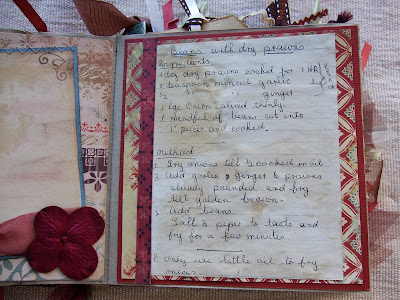 Beans with dry prawns
Ingredients
dry prawns soaked for 1 HR
1 teaspoon minced garlic
1/2 " " ginger
1 lge Onion sliced thinly.
1 Handful of beans cut into
1" pieces and washed.
Method
1. Fry onions till 1/2 cooked in oil
2. Add garlic, ginger & prawns
already pounded and fry
till golden brown.
3. Add beans.
Salt & peper to taste and
fry for a few minutes
only use little oil to fry
onions